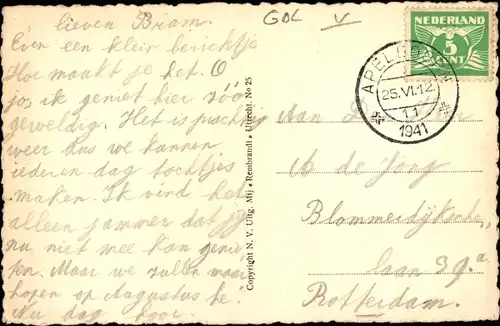 Lieven Bram.
Even een klein berichtje
Hoe maakt je het. O
jos ik geniet hier zóó
geweldig. Het is prachtig
weer dus we kunnen
iederen dag tochtjes
maken. Ik vind het
alleen jammer dat jij
nu niet mee kan genie-
ten. Maar we zullen maar
hopen op Augustus hé.
Nu dag hoor.
GDL V
Copyright N. V. Uitg. Mij «Rembrandt» Utrecht. No 25
NEDERLAND
5
CENT
APELDOORN
25.VI.12
11
1941
Aan
A de Jong
Blommerdijksche
laan 39.a
Rotterdam.